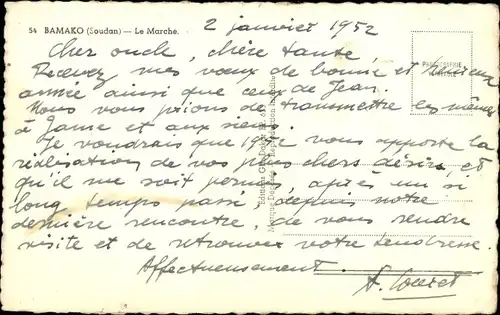 54 BAMAKO (Soudan) — Le Marché.
2 janvier 1952
Cher oncle, chère tante,
Recevez mes vœux de bonne et heureuse
année ainsi que ceux de Jean.
Nous vous prions de transmettre les mêmes
à Jane et aux siens.
Je voudrais que 1952 vous apporte la
réalisation de vos plus chers désirs, et
qu'il me soit permis, après un si
long temps passé, depuis notre
dernière rencontre, de vous rendre
visite et de retrouver votre tendresse.
Affectueusement